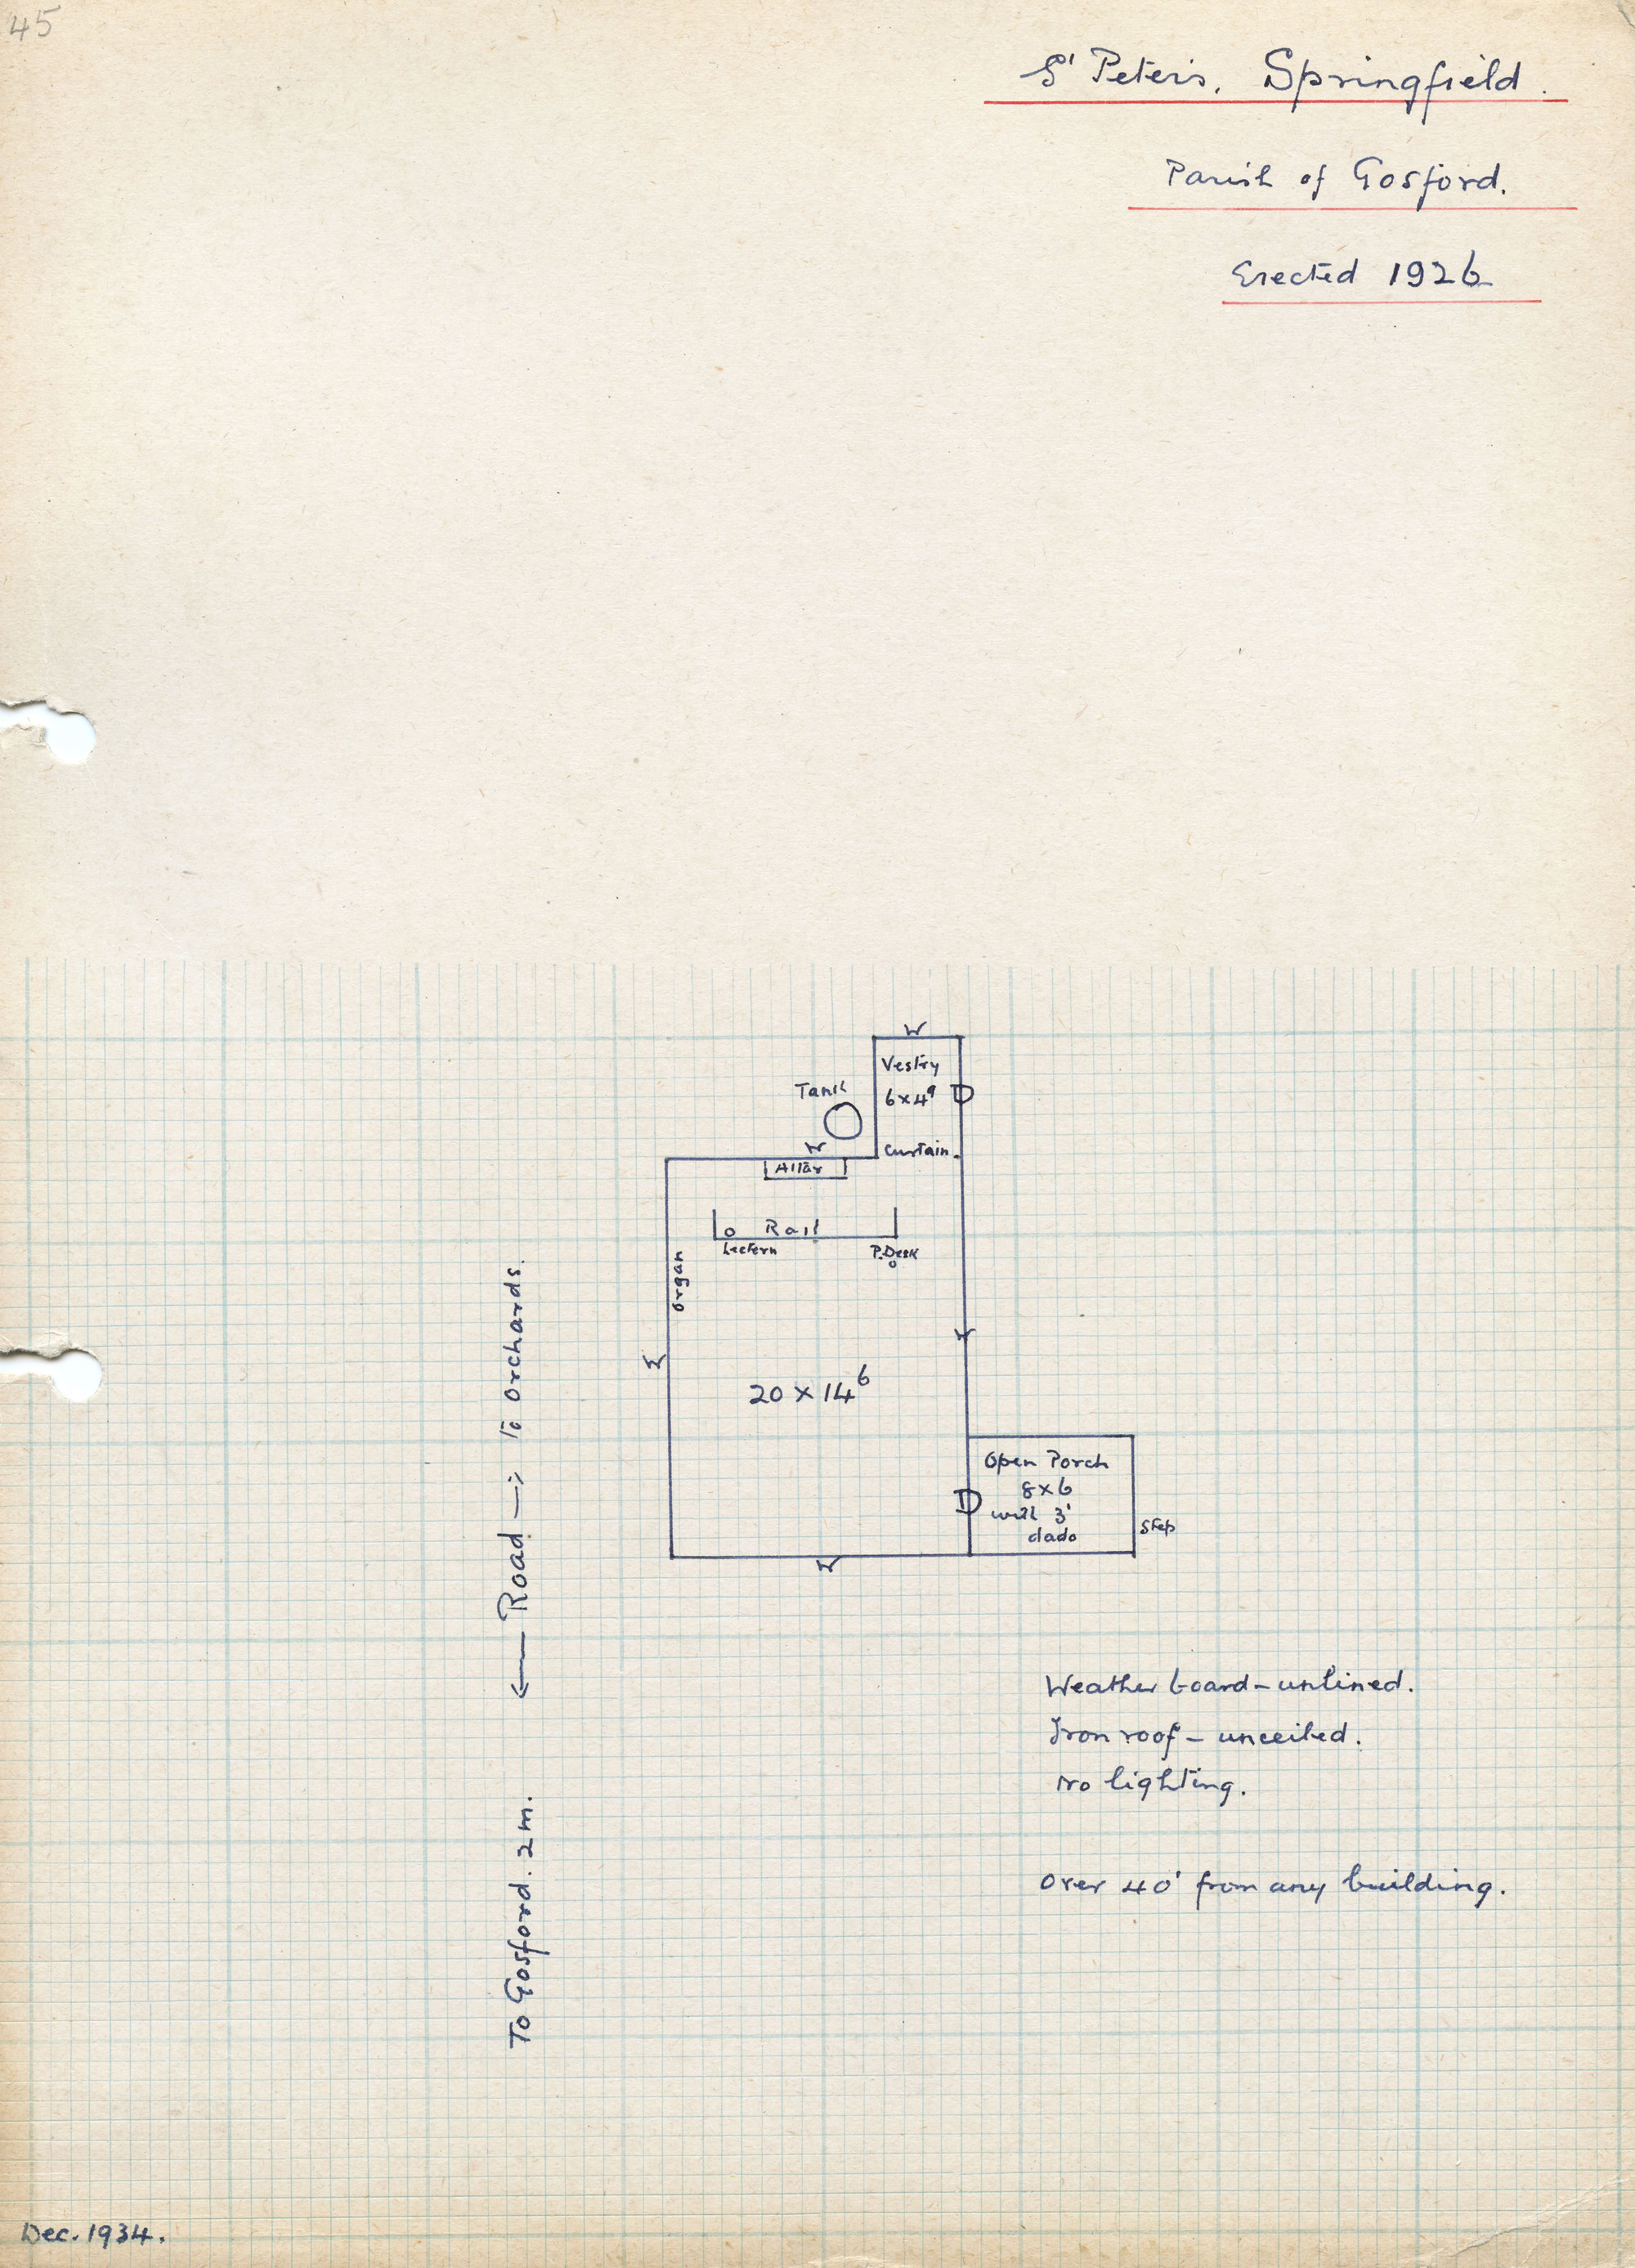 45
St Peter's, Springfield.
Parish of Gosford.
Erected 1926
W
Vestry
6 x 4⁹
D
Tank
W
Curtain.
Altar
Rail
Lectern
P.Desk
Organ
W
W
20 x 14⁶
Open Porch
8 x 6
with 3'
dado
D
Step
W
To Gosford. 2 m. ← Road → To Orchards.
Weather board - unlined.
Iron roof - unceiled.
No lighting.
Over 40' from any building.
Dec. 1934.